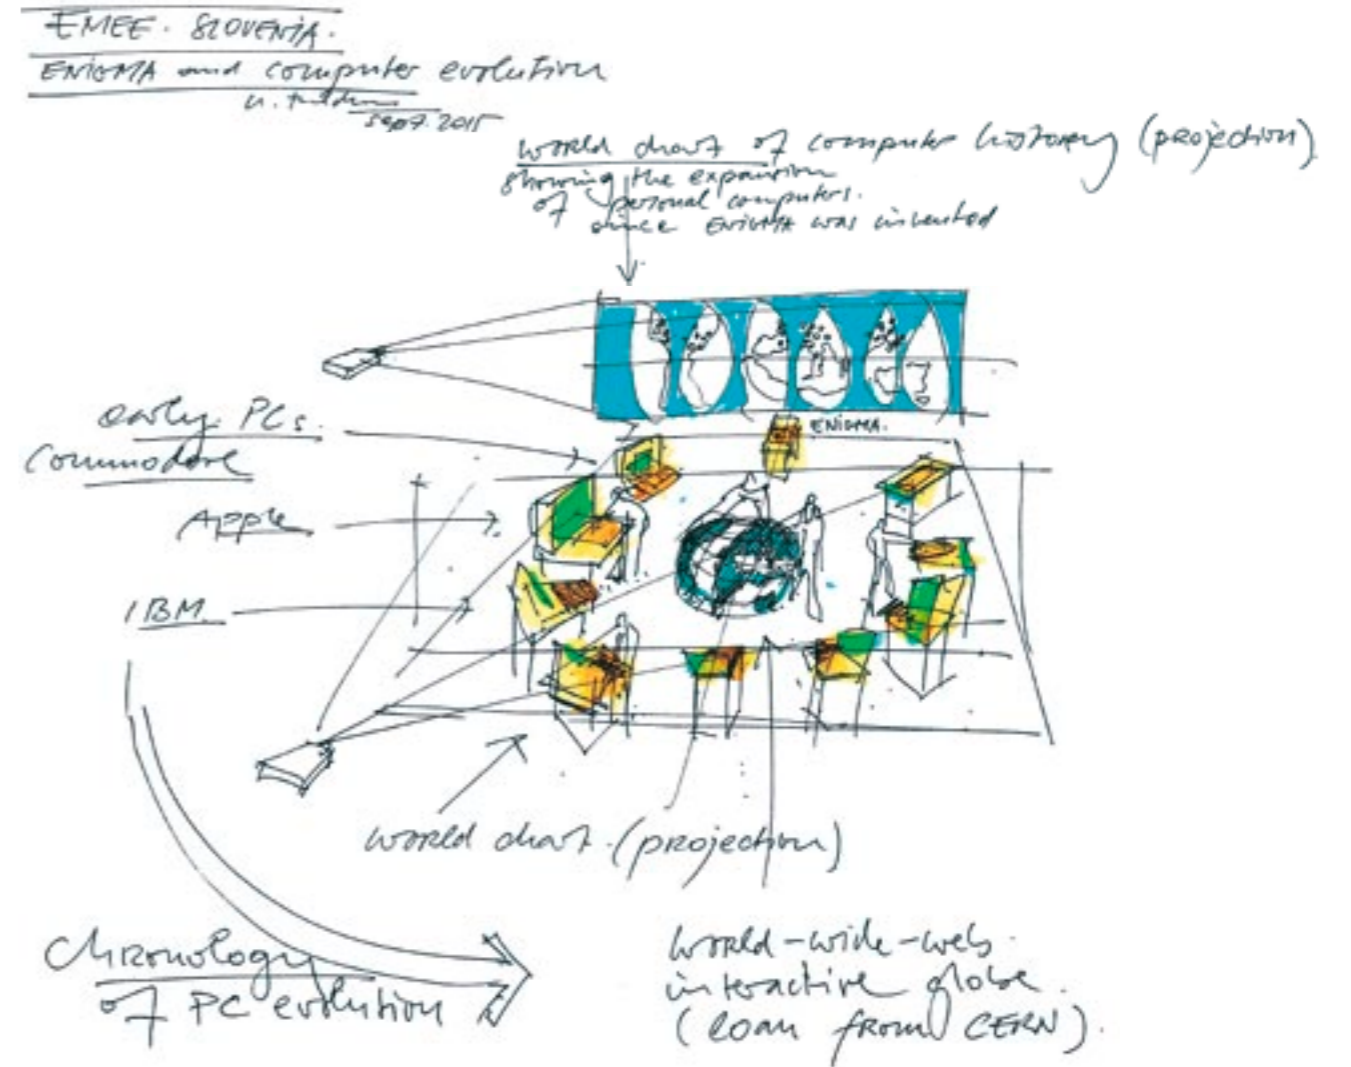 EMEE. SLOVENIA.
ENIGMA and computer evolution
sept. 2015
world chart of computer history (projection)
showing the expansion
of personal computers.
since ENIGMA was invented
early PCs.
Commodore
ENIGMA.
Apple
IBM
world chart. (projection)
Chronology
of PC evolution
world-wide-web.
interactive globe.
(loan from CERN).